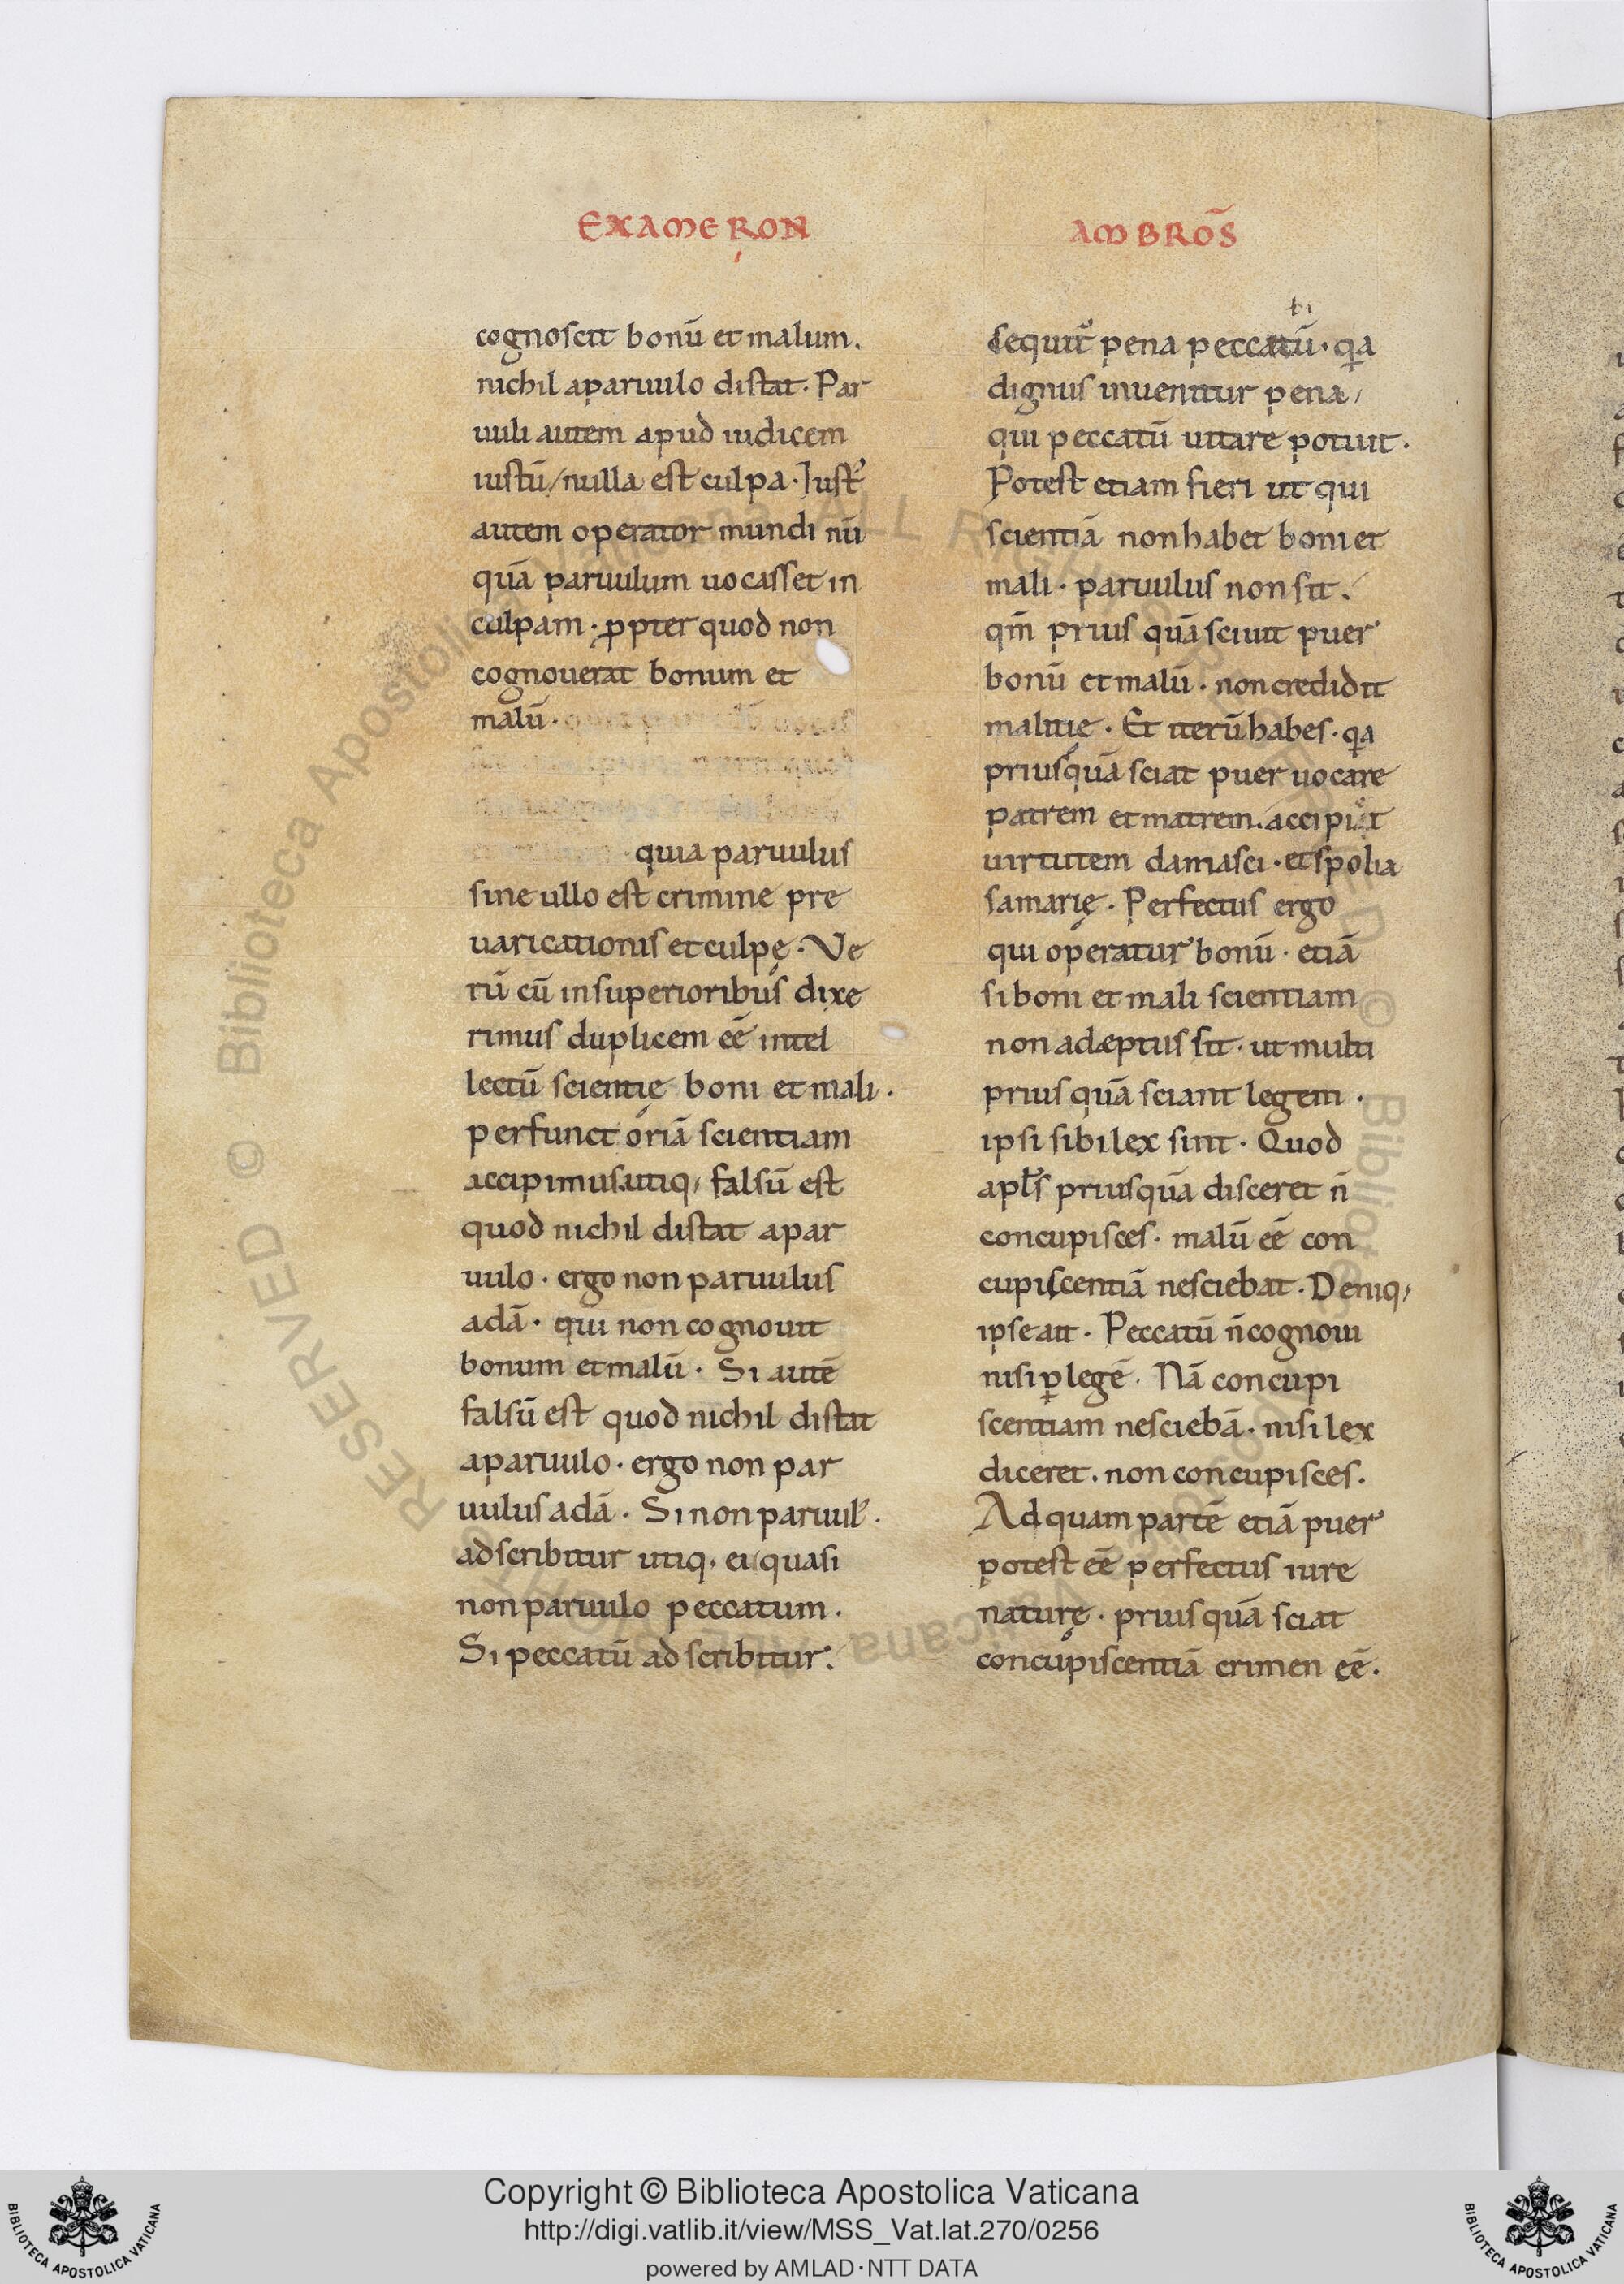 EXAMERON
cognoscit bonū et malum.
nichil aparuulo distat. Par
uuli autem apud iudicem
iustū/nulla est culpa. Iust᾿
autem operator mundi nū
quā paruulum uocasset in
culpam. ꝓpter quod non
cognouerat bonum et
malū.
quia paruulus
sine ullo est crimine pre
uaricationis et culpę. Ve
rū cū insuperioribus dixe
rimus duplicem eē intel
lectū scientię boni et mali.
perfunctoriā scientiam
accipimus. utiq; falsū est
quod nichil distat apar
uulo. ergo non paruulus
adā. qui non cognouit
bonum et malū. Si autē
falsū est quod nichil distat
aparuulo. ergo non par
uulus adā. Si non paruul᾿.
adscribitur utiq; ei quasi
non paruulo peccatum.
Si peccatū adscribitur.
AMBROS̄
ti
sequit᷑ pena peccatū. qa
dignus inuenitur pena/
qui peccatū uitare potuit.
Potest etiam fieri ut qui
scientiā non habet boni et
mali. paruulus non sit.
qm̄ prius quā sciuit puer
bonū et malū. non credidit
malitię. Et iterū habes. qa
priusquā sciat puer uocare
patrem et matrem. accipiet
uirtutem damasci. et spolia
samarię. Perfectus ergo
qui operatur bonū. etiā
si boni et mali scientiam
non adeptus sit. ut multi
prius quā sciant legem.
ipsi sibi lex sint. Quod
apl̄s priusquā disceret n̄
concupisces. malū eē con
cupiscentiā nesciebat. Deniq;
ipse ait. Peccatū n̄ cognoui
nisi ꝑ legē. Nā concupi
scentiam nesciebā. nisi lex
diceret. non concupisces.
Ad quam partē etiā puer
potest eē perfectus iure
naturę. prius quā sciat
concupiscentiā crimen eē.
Copyright © Biblioteca Apostolica Vaticana
http://digi.vatlib.it/view/MSS_Vat.lat.270/0256
powered by AMLAD·NTT DATA
BIBLIOTECA APOSTOLICA VATICANA
BIBLIOTECA APOSTOLICA VATICANA